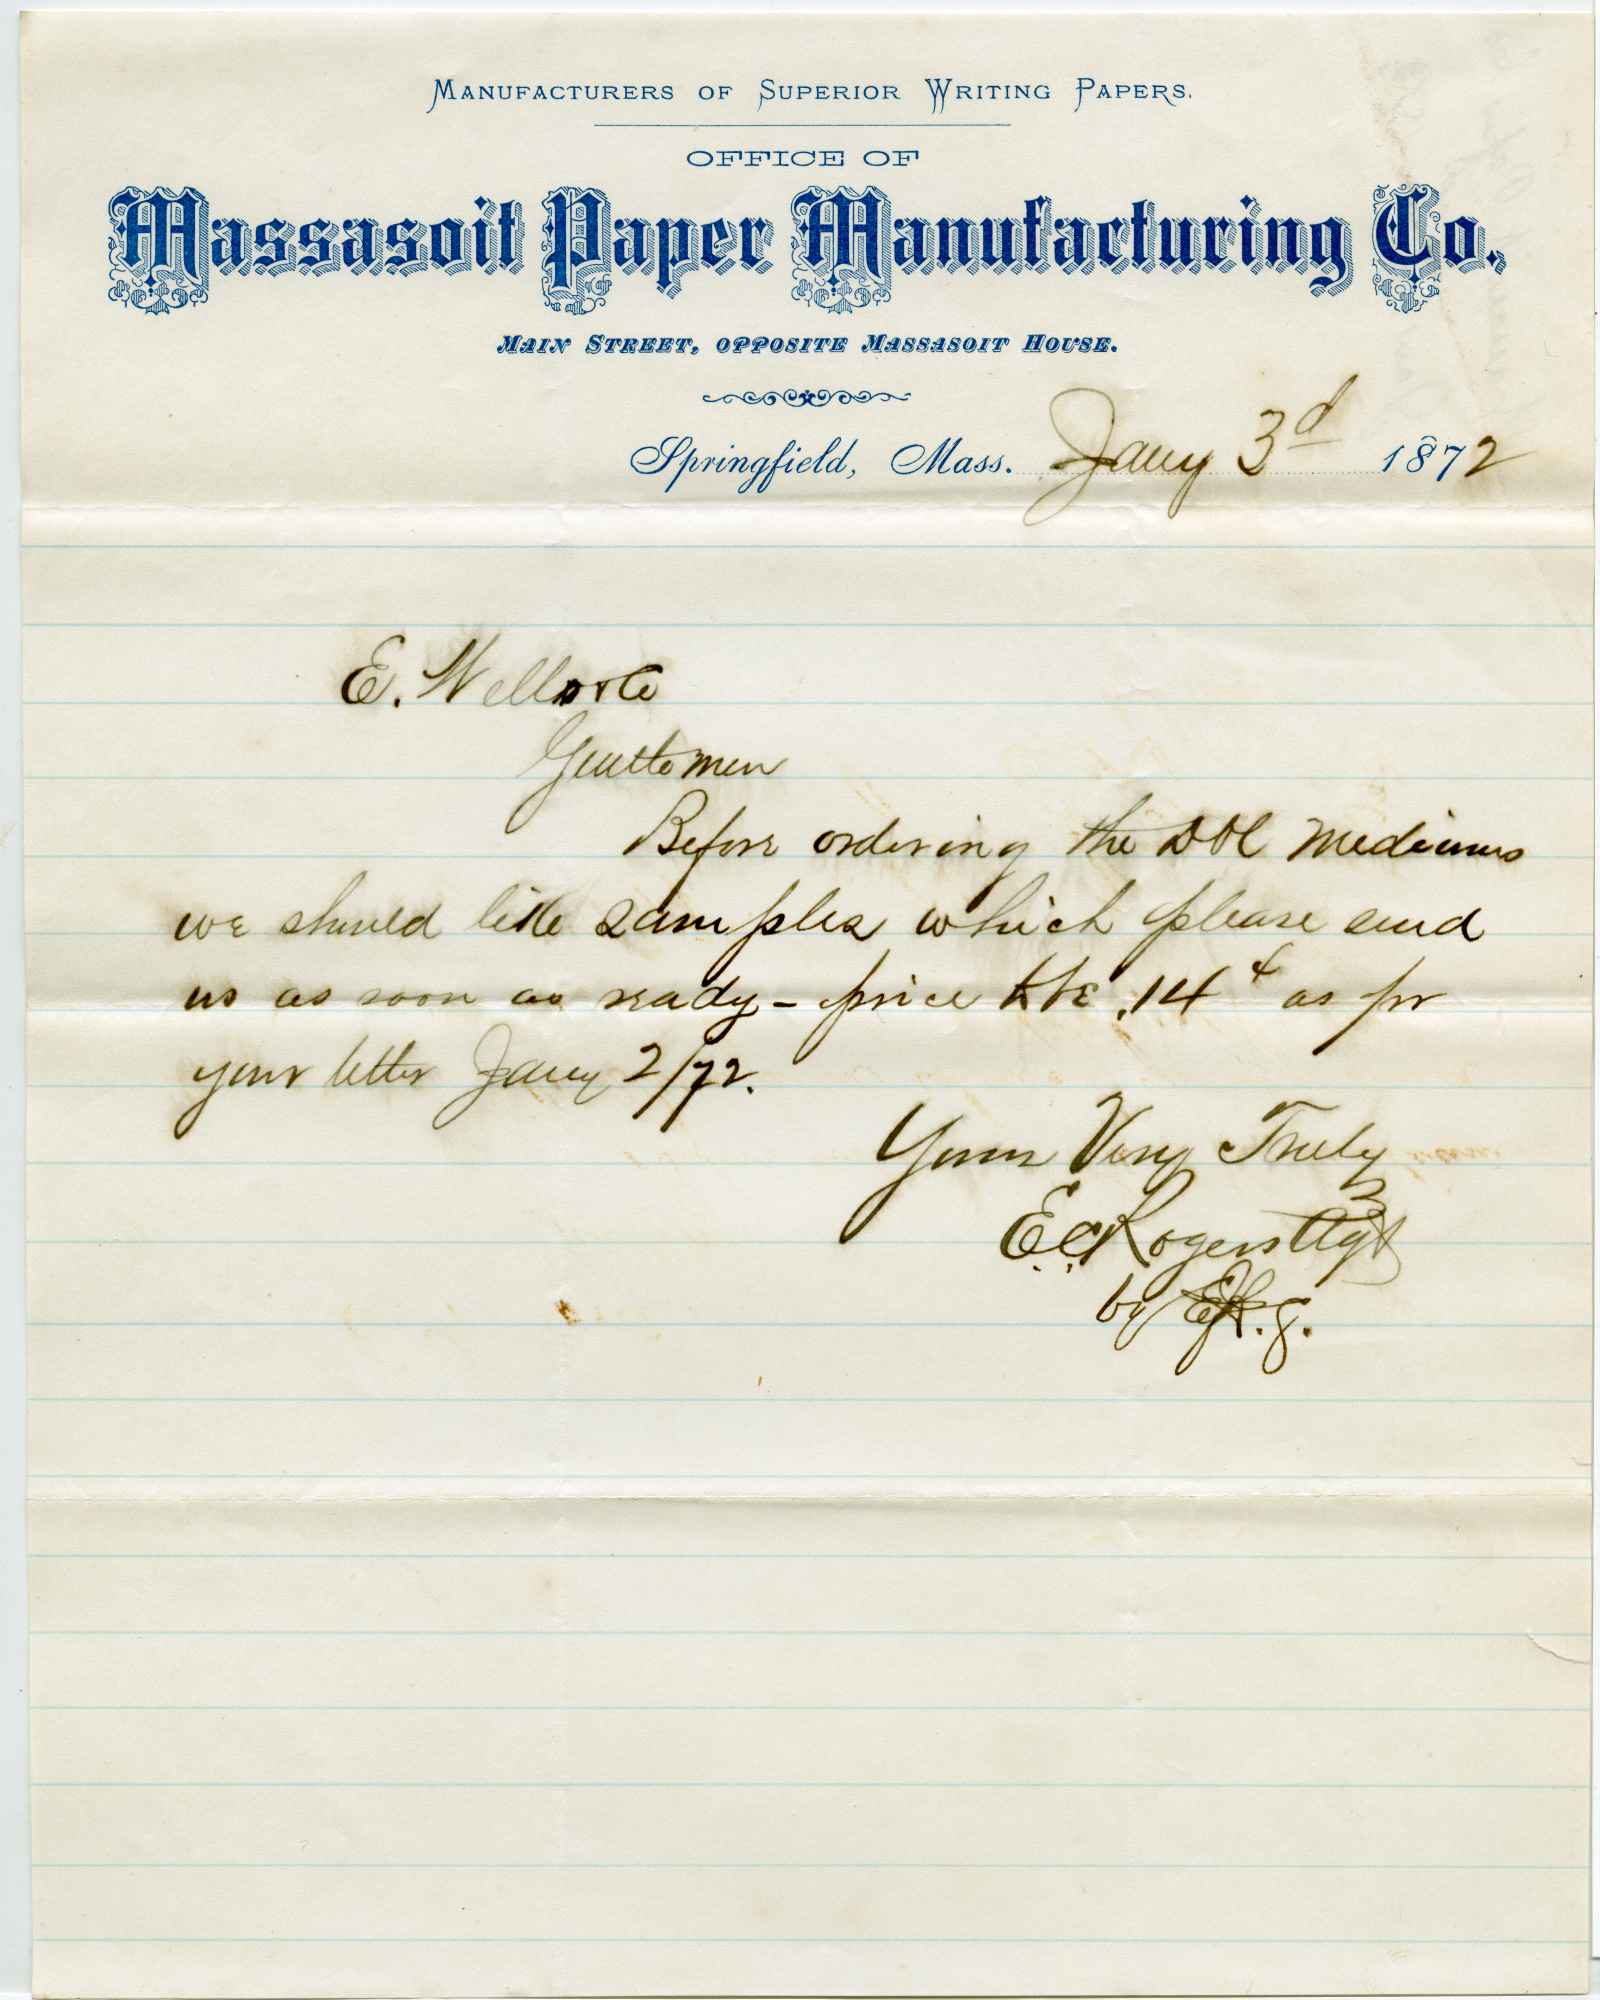 Manufacturers of Superior Writing Papers.
OFFICE OF
Massasoit Paper Manufacturing Co.,
Main Street, opposite Massasoit House.
Springfield, Mass. Jany 3d 1872
E. Wells & Co
Gentlemen
Before ordering the Dbl Mediums
we should like samples which please send
us as soon as ready - price .14 ¢ as pr
your letter Jany 2/72.
Yours Very Truly
E. C. Rogers Agt
by